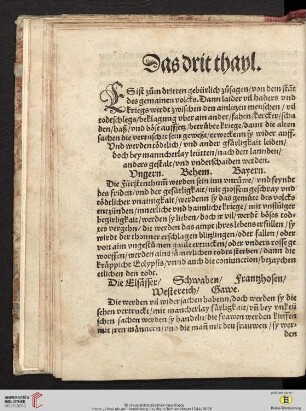 Das drit thayl.
ES ist zům dritten gebürlich zůsagen/ von dem stät
des gemainen volcks. Dann laider vil haders vnd
kriegs wirdt zwischen den ainigen menschen/ vil
todtschlegs/ beklagung vber ain ander/ fahen/ kercker/ scha
den/ haß/ vnd böse aufftzeg/ betrübte kriege/ dann die alten
sachen die verwischet sein gewese/ erweckent sy wider auff.
Vnd werden tödelich/ vnd ander gfärligkait leiden/
doch bey mancherlay leütten/ nach den landen/
anders gestalt/ vnd vnderschaiden werden.
Vngern. Behem. Bayern.
Die Fürstenthumb werden sein inn vnrůwe/ vnd feyndt
des friden/ vnd der gefärligkait/ mit grossem geschray vnd
tödelicher vnainigkait/ werdend sy das gemüte des volcks
entzünden/ innerliche vnd haimliche kriege/ mit vnsinniger
begirligkait/ werden sy lieben/ doch ir vil/ werdē böses tods
tes vergehn/ die werden das ampt ihres lebens erfüllen/ sy
wirdt der thonner erschlagen blitzlingen/ oder fallen/ oder
von aim vngestůmen gaule ertrucken/ oder vnders rosse ge
worffen/ werden ains jämerlichen todes sterben/ dann die
kräpische Eclypsis/ vnnd auch die coniunction/ betzaychet
ettlichen den todt.
Die Elsässer/ Schwaben/ Frantzhosen/
Westereich/ Gawe.
Die werden vil widersachen habenn/ doch werden sy die
sehen vertruckt/ mit mancherlay färligkait/ vñ bey vnkeü
schen sachen werden sy handeln/ die frawen werden kieffen
mit jren männern/ vnd die mañ mit den frauwen/ sy wer
den